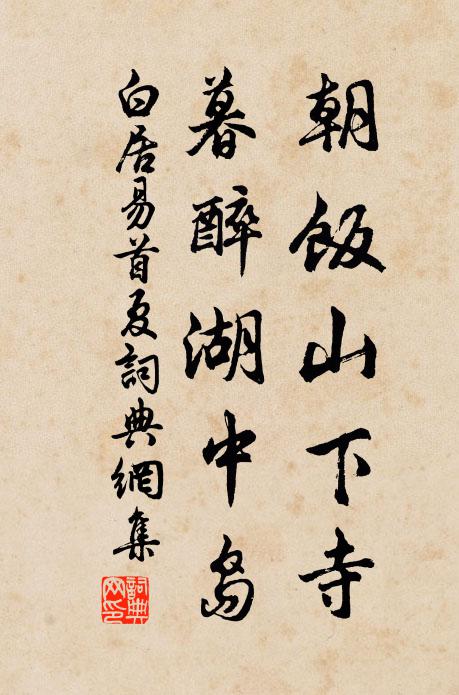 朝飯山下寺
暮醉湖中島
白居易首夏詞典網集
詞典網印